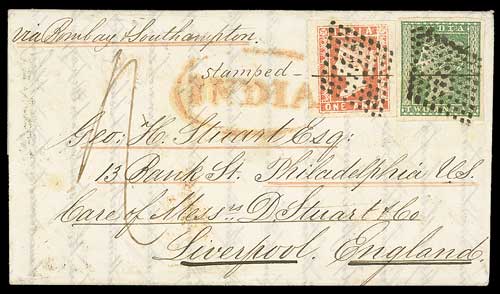 via Bombay & Southampton.
stamped
INDIA
ONE
INDIA
TWO ANNAS
Geo: H. Stuart Esq:
13 Bank St. Philadelphia U.S.
Care of Messrs D Stuart & Co
Liverpool. England.